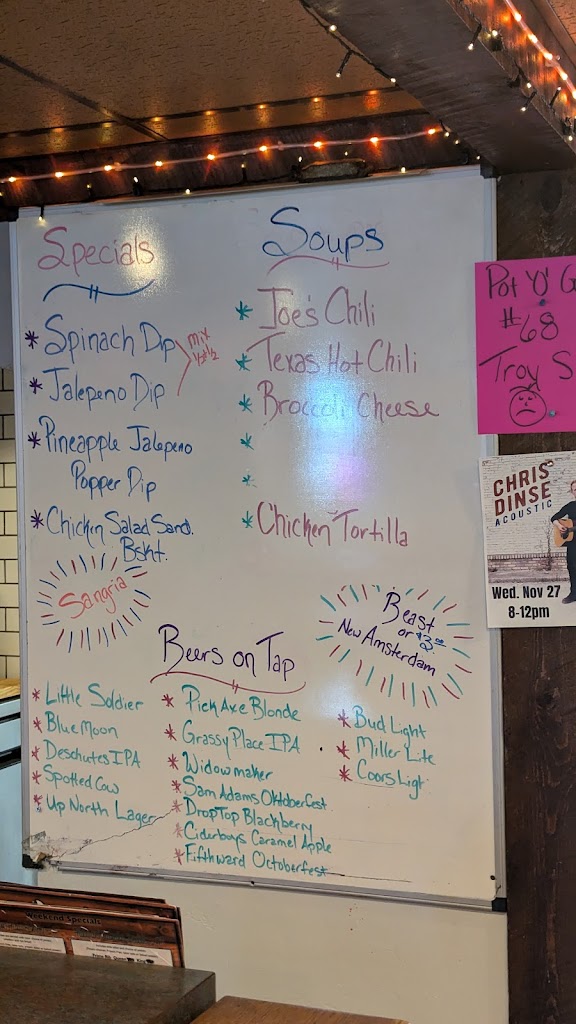 Specials
* Spinach Dip
* Jalepeno Dip
mix
1/2 + 1/2
* Pineapple Jalepeno
Popper Dip
* Chicken Salad Sand.
Bskt.
Sangria
Soups
* Joe's Chili
* Texas Hot Chili
* Broccoli Cheese
*
*
* Chicken Tortilla
Beast
or $3.00
New Amsterdam
Beers on Tap
* Little Soldier
* Blue Moon
* Deschutes IPA
* Spotted Cow
* Up North Lager
* Pick Axe Blonde
* Grassy Place IPA
* Widowmaker
* Sam Adams Oktoberfest
* DropTop Blackberry
* Ciderboys Caramel Apple
* Fifthward Octoberfest
* Bud Light
* Miller Lite
* Coors Ligt
Pot 'O' G
#68
Troy S
CHRIS
DINSE
ACOUSTIC
Wed. Nov 27
8-12pm
Weekend Specials